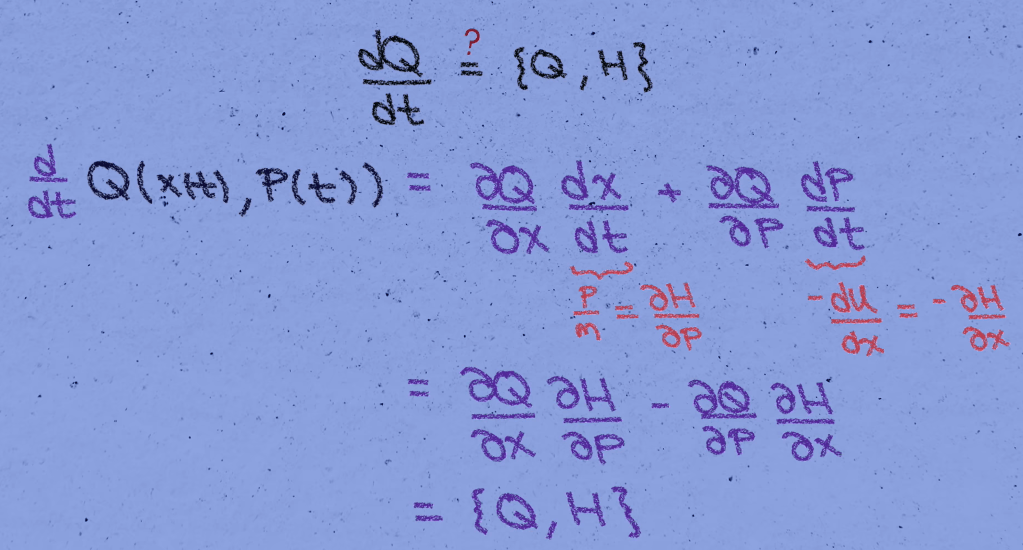 dQ/dt =? {Q, H}
d/dt Q(x(t), P(t)) = ∂Q/∂x dx/dt + ∂Q/∂P dP/dt
P/m = ∂H/∂P   -dU/dx = -∂H/∂x
= ∂Q/∂x ∂H/∂P - ∂Q/∂P ∂H/∂x
= {Q, H}